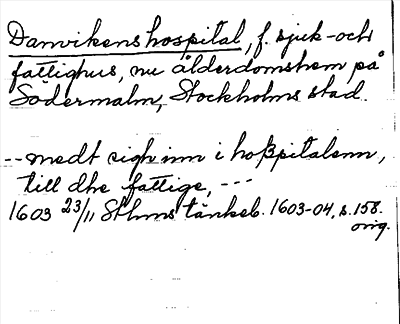 Danvikens hospital, f. sjuk- och
fattighus, nu ålderdomshem på
Södermalm, Stockholms stad.
-- medt sigh inn i hoßpitalenn,
till dhe fattige, ---
1603 23/11 Sthms tänkeb. 1603-04, s. 158.
orig.